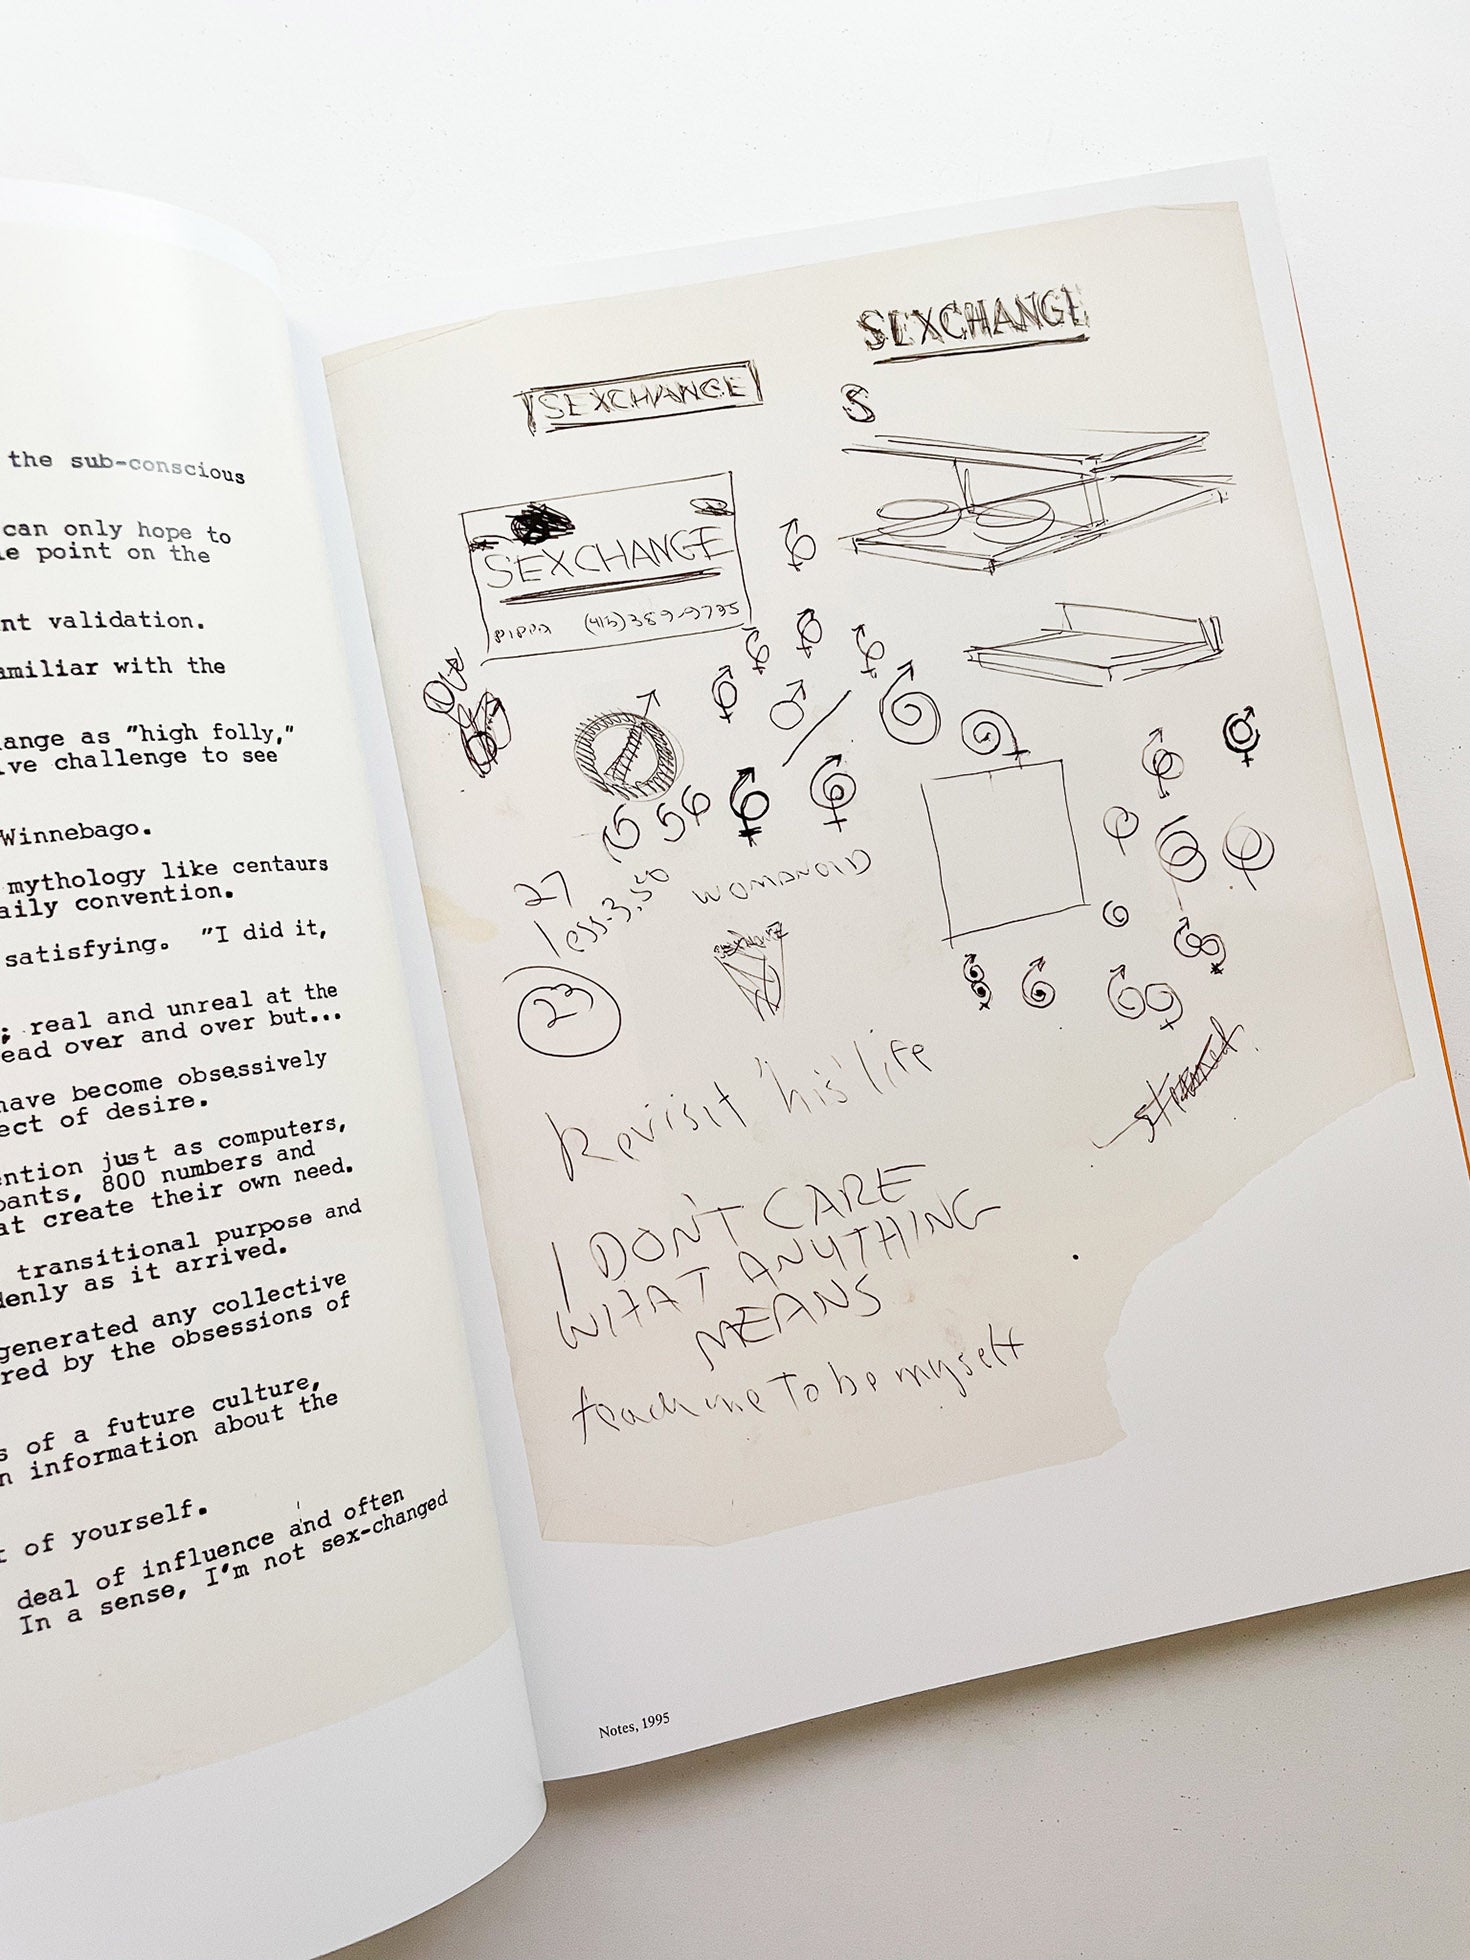 the sub-conscious
can only hope to
point on the
validation.
with the
as "high folly,"
challenge to see
Winnebago.
mythology like centaurs
convention.
satisfying. "I did it,
; real and unreal at the
over and over but...
have become obsessively
of desire.
just as computers,
800 numbers and
create their own need.
transitional purpose and
as it arrived.
generated any collective
by the obsessions of
of a future culture,
information about the
of yourself.
deal of influence and often
In a sense, I'm not sex-changed
SEXCHANGE
SEXCHANGE
S
SEXCHANGE
PIPPA (415) 389-9735
27
less-3.50
WOMANOID
23
SEXCHANGE
Revisit 'his' life
I DON'T CARE
WHAT ANYTHING
MEANS
teach me to be myself
Notes, 1995